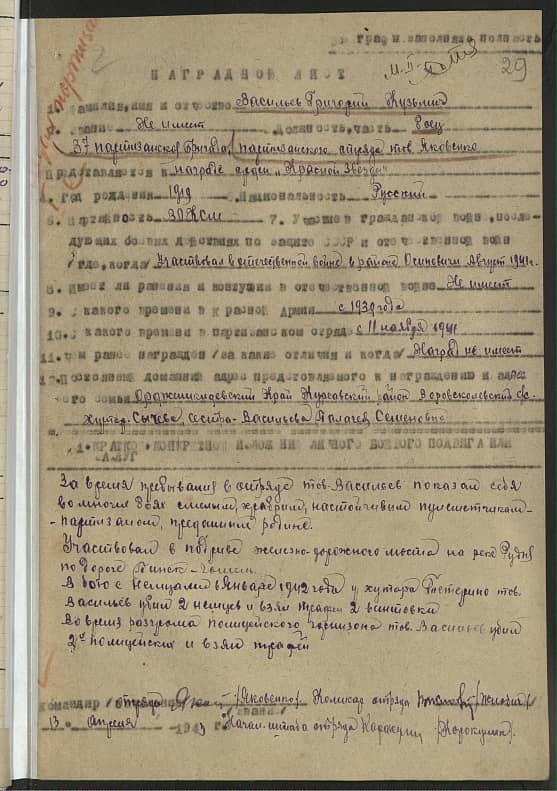 граф м. заполняю полность
29
2
НАГРАДНОЙ ЛИСТ
1. Фамилия, имя и отчество Васильев Григорий Кузьмич
2. Звание Не имеет Должность, часть боец
37 партизанской бригады, партизанского отряда тов. Яковенко
Представляется к награде орден „Красной Звезды"
4. Год рождения 1919 Национальность Русский
6. Партийность ВЛКСМ 7. Участие в гражданской войне, после-
дующих боевых действиях по защите СССР и отечественной войне
/где, когда/ Участвовал в отечественной войне в районе Осиповичи Август 1941г.
8. Имеет ли ранения и контузии в отечественной войне Не имеет
9. С какого времени в Красной Армии с 1939 года
10. С какого времени в партизанском отряде с 11 ноября 1941
11. Чем ранее награжден /за какие отличия и когда/ Наград не имеет
12. Постоянный домашний адрес представляемого к награждению и адрес
его семьи Орджоникидзевский Край Курсавский район Воровсколесский с/с.
Хутор. Сычева, Сестра- Васильева Семеновна
1. КРАТКОЕ КОНКРЕТНОЕ ИЗЛОЖЕНИЕ ЛИЧНОГО БОЕВОГО ПОДВИГА ИЛИ
ЗАСЛУГ
За время пребывания в отряде тов. Васильев показал себя
во многих боях смелым, храбрым, настойчивым пулеметчиком-
-партизаном, преданным родине.
Участвовал в подрыве железно-дорожного моста на реке
по дороге Минск-Гомель.
В бою с немцами в Январе 1942 года у хутора тов.
Васильев убил 2 немцев и взял трофеи 2 винтовки.
Во время разгрома полицейского гарнизона тов. Васильев убил
2х полицейских и взял трофеи
Командир /отряда /Яковенко/ Комиссар отряда
13 апреля 1943 Начал. штаба отряда